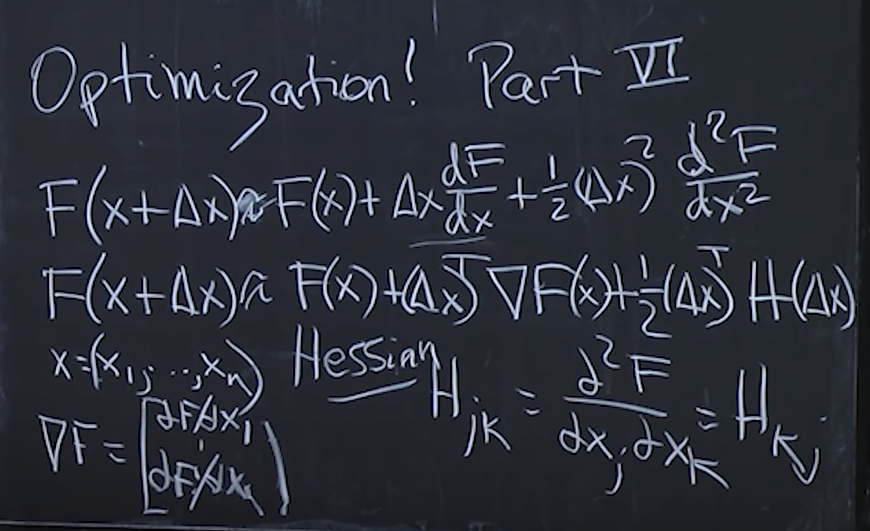 Optimization! Part VI
F(x+Δx) ≈ F(x) + Δx dF/dx + 1/2 (Δx)² d²F/dx²
F(x+Δx) ≈ F(x) + (Δx)ᵀ ∇F(x) + 1/2 (Δx)ᵀ H (Δx)
x = (x₁, ..., xₙ) Hessian H_jk = ∂²F/∂x_j ∂x_k = H_kj
∇F = [∂F/∂x₁ ⋮ ∂F/∂xₙ]